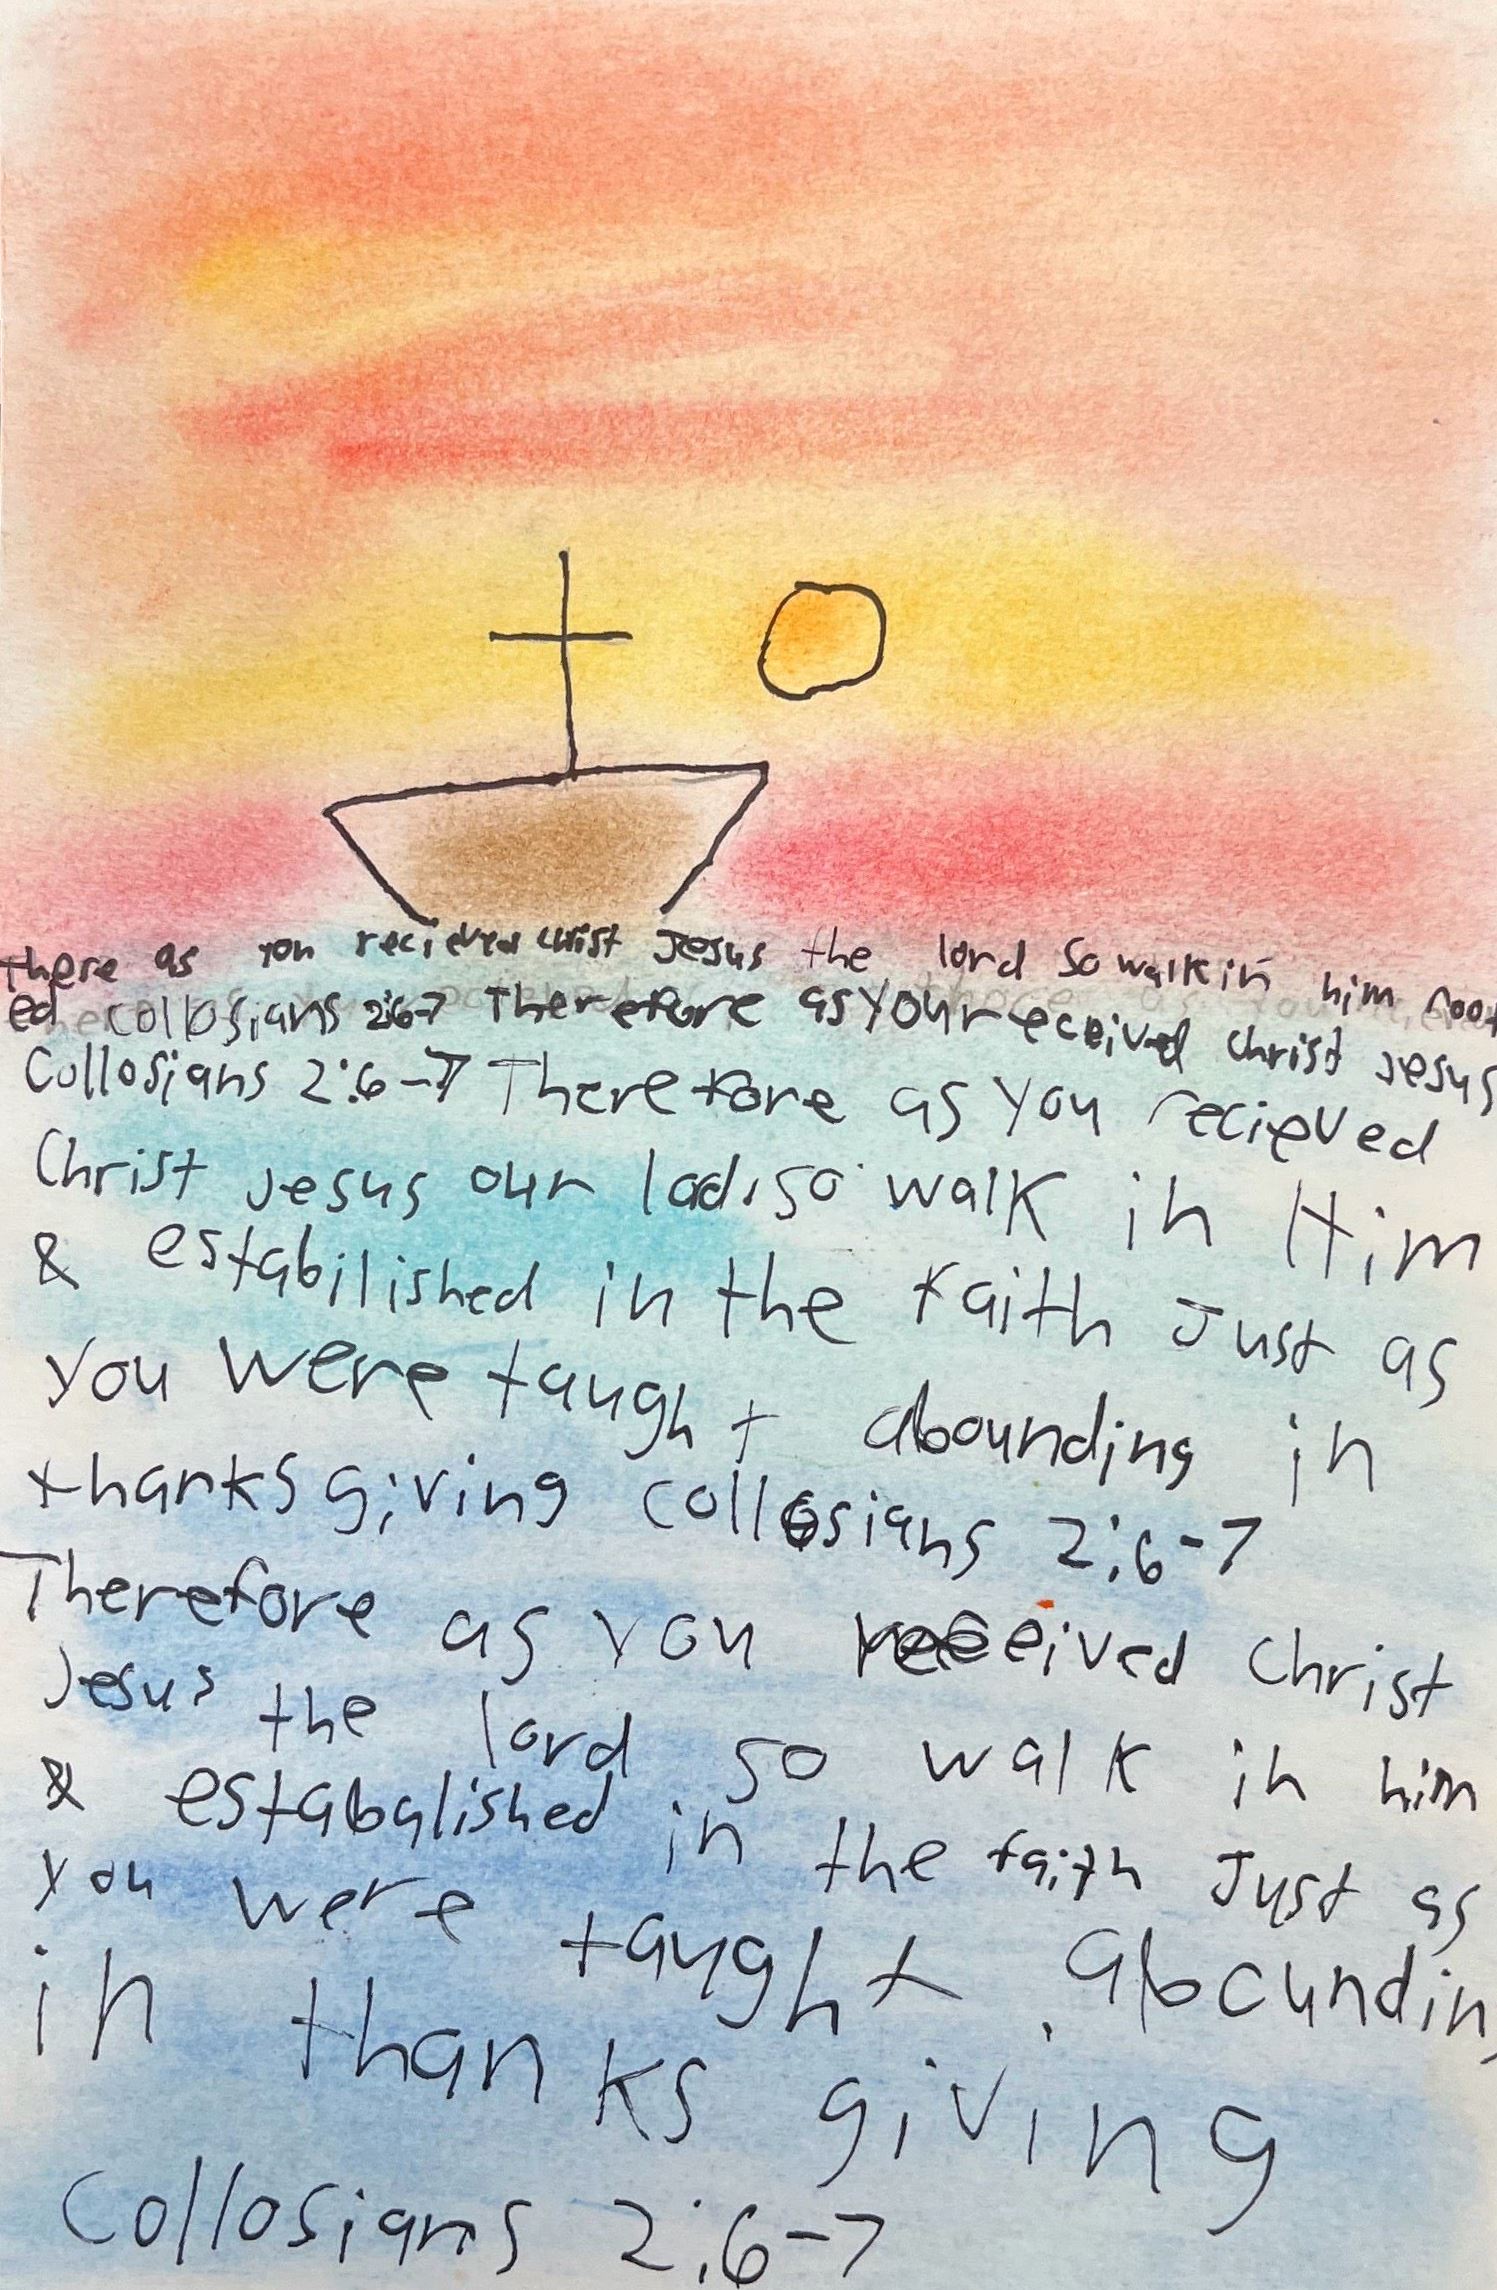 there as you recieved christ Jesus the lord So walk in him root
ed collosians 2:6-7 Therefore as you received christ Jesus
Collosians 2:6-7 Therefore as you recieved
Christ Jesus our lad. so walk in Him
& estabilished in the faith Just as
you were taught abounding in
thanksgiving collosians 2:6-7
Therefore as you received Christ
Jesus the lord so walk in him
& estabalished in the faith Just as
you were taught abounding
in thanks giving
Collosians 2:6-7